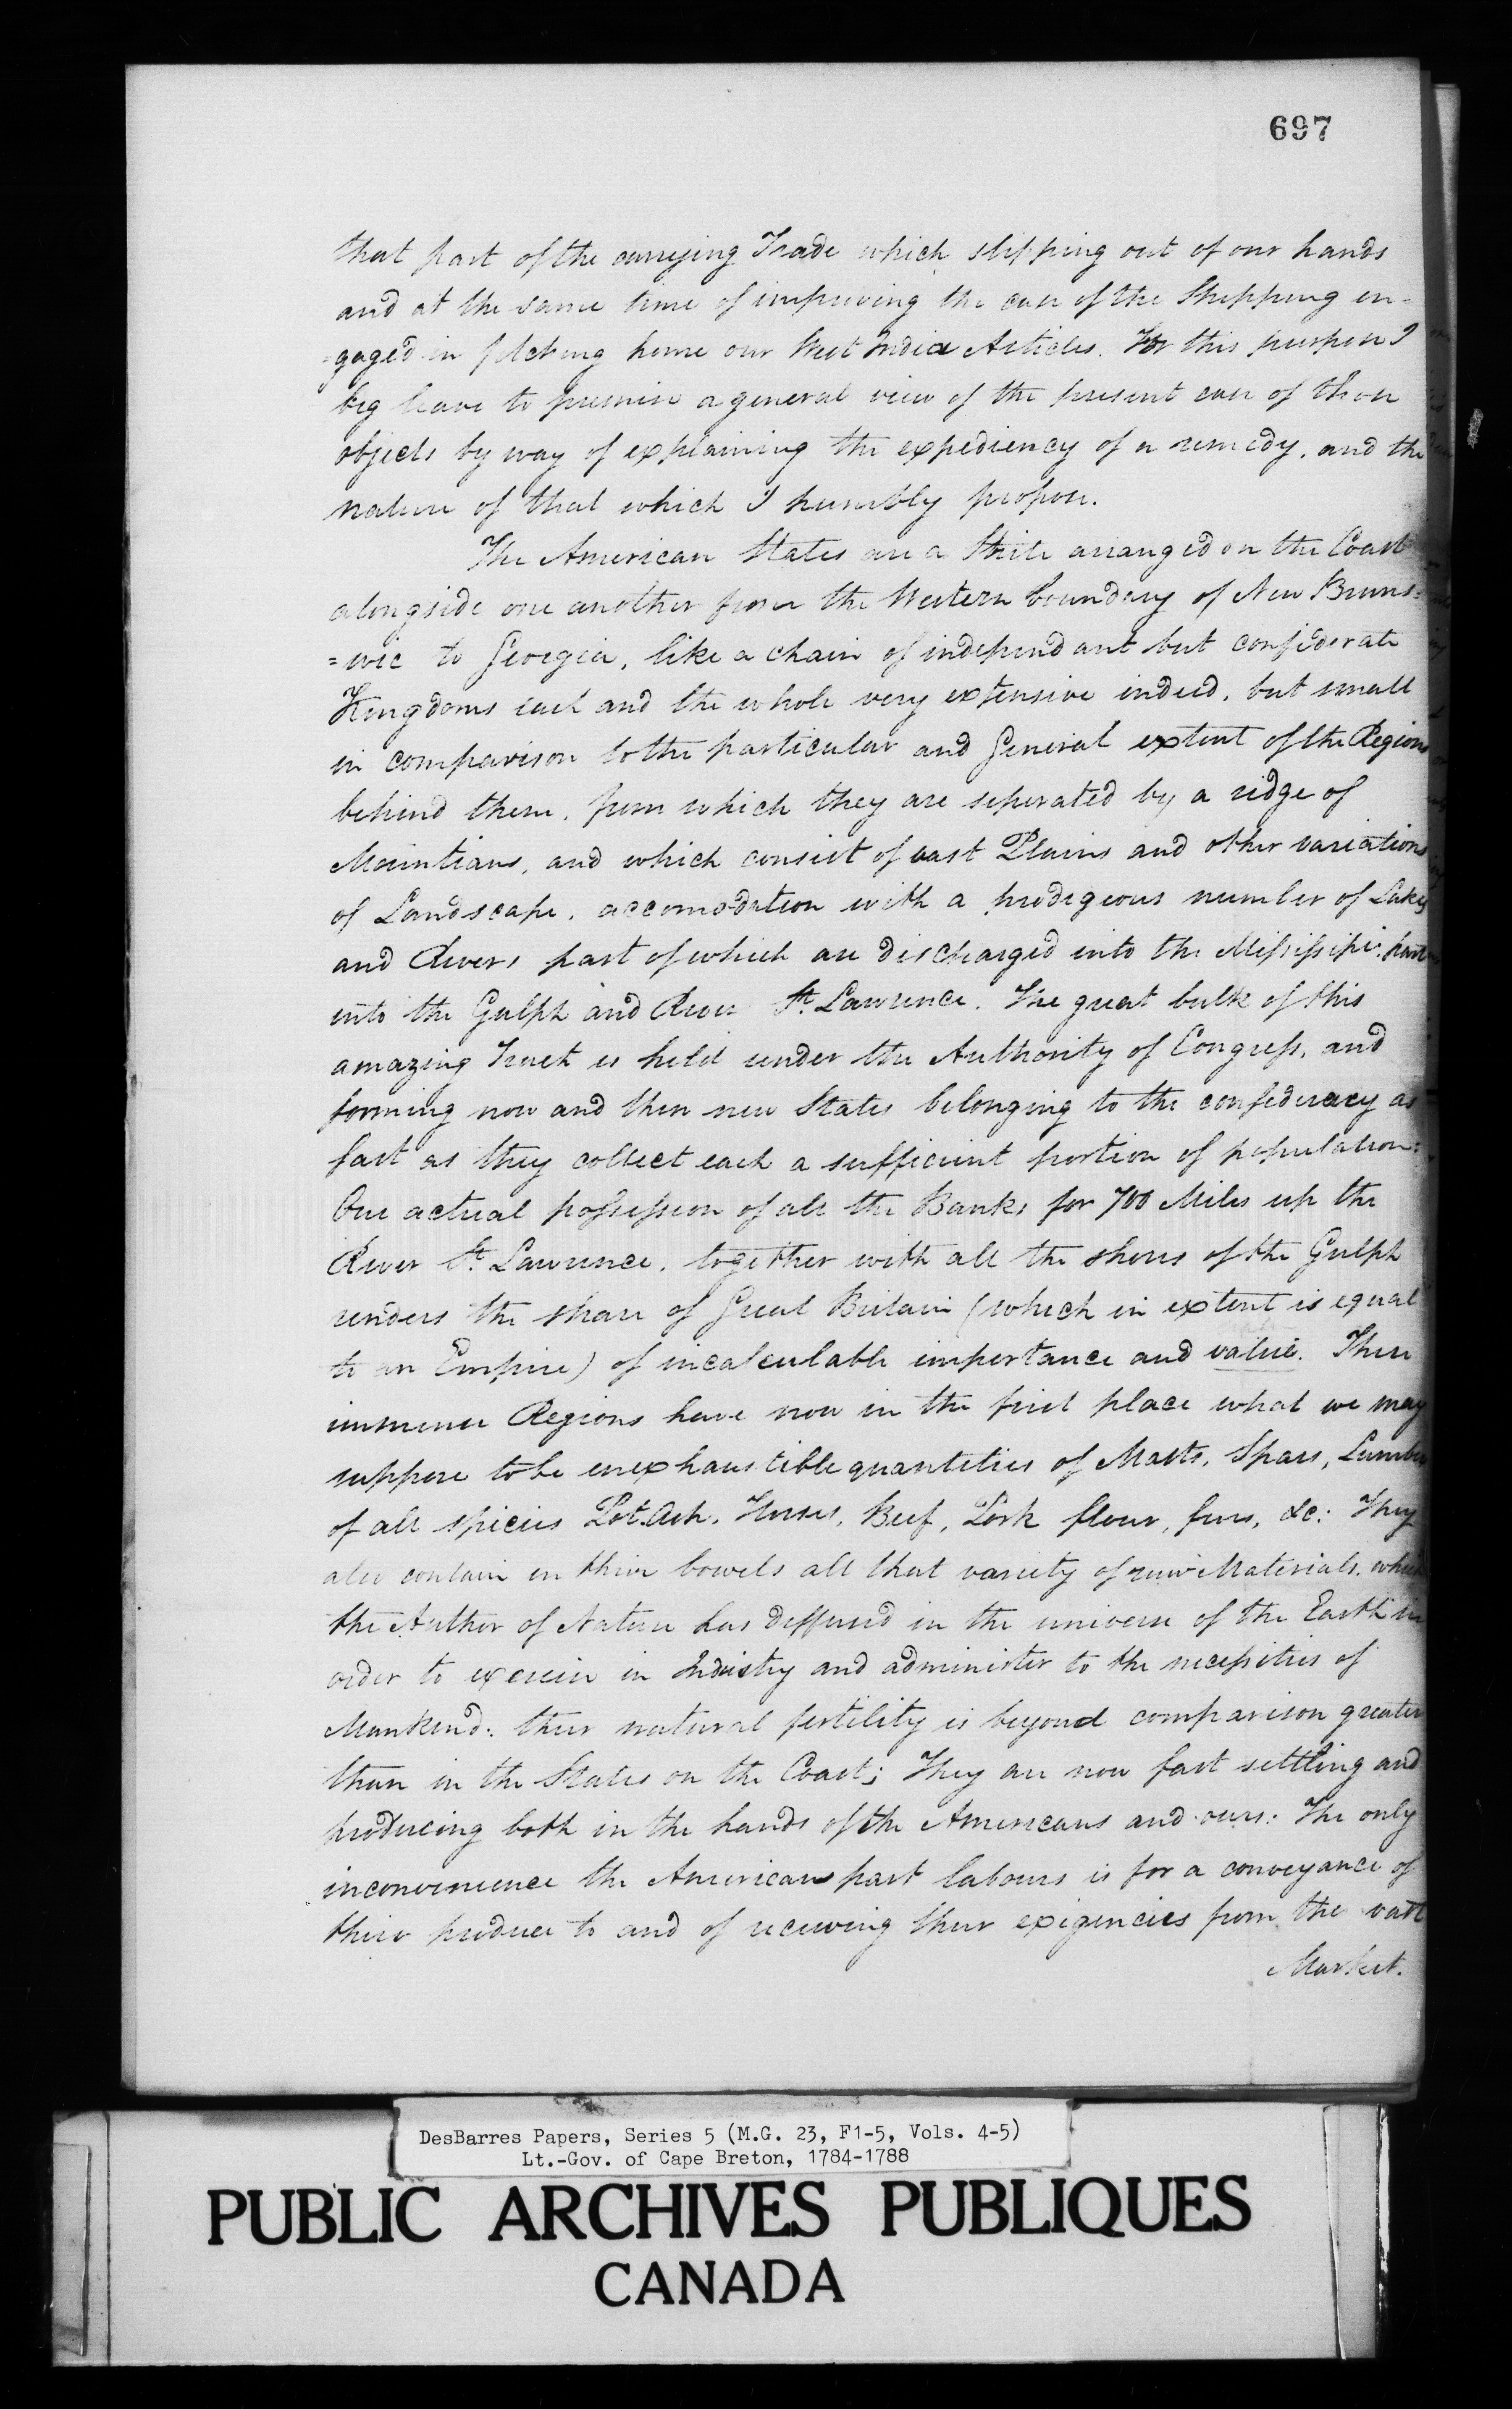 697
that part of the carrying Trade which slipping out of our hands
and at the same time of improving the case of the Shipping en=
=gaged in fetching home our West India Articles. For this purpose I
beg leave to premise a general view of the present case of those
objects by way of explaining the expediency of a remedy, and the
nature of that which I humbly propose.
The American States are a arranged on the Coast
alongside one another from the Western boundary of New Bruns=
=wic to Georgia, like a chain of independant but confederate
Kingdoms each and the whole very extensive indeed, but small
in comparison to the particular and General extent of the Regions
behind them, from which they are seperated by a ridge of
Mountians, and which consist of vast Plains and other variations
of Landscape, accomodation with a prodigeous number of Lakes
and Rivers part of which are discharged into the Missisipi, part
into the Gulph and River St. Lawrence. The great bulk of this
amazing Tract is held under the Authority of Congress, and
forming now and then new States belonging to the confederacy as
fast as they collect each a sufficient portion of population:
Our actual possession of all the Banks for 700 Miles up the
River St. Lawrence, together with all the shores of the Gulph
renders the share of Great Britain (which in extent is equal
to an Empire) of incalculable importance and value. These
immense Regions have now in the first place what we may
suppose to be inexhaustible quantities of Masts, Spars, Lumber
of all species Pot.Ash, Horses, Beef, Pork flour, furs, &c: They
also contain in thier bowels all that variety of raw Materials, which
the Author of Nature has diffused in the universe of the Earth in
order to exercise in Industry and administer to the necessities of
Mankind: their natural fertility is beyond comparison greater
than in the States on the Coast; They are now fast settling and
producing both in the hands of the Americans and ours: The only
inconvenience the American part labours is for a conveyance of
thier produce to and of receiving their exigencies from the vast
Market.
DesBarres Papers, Series 5 (M.G. 23, F1-5, Vols. 4-5)
Lt.-Gov. of Cape Breton, 1784-1788
PUBLIC ARCHIVES PUBLIQUES
CANADA